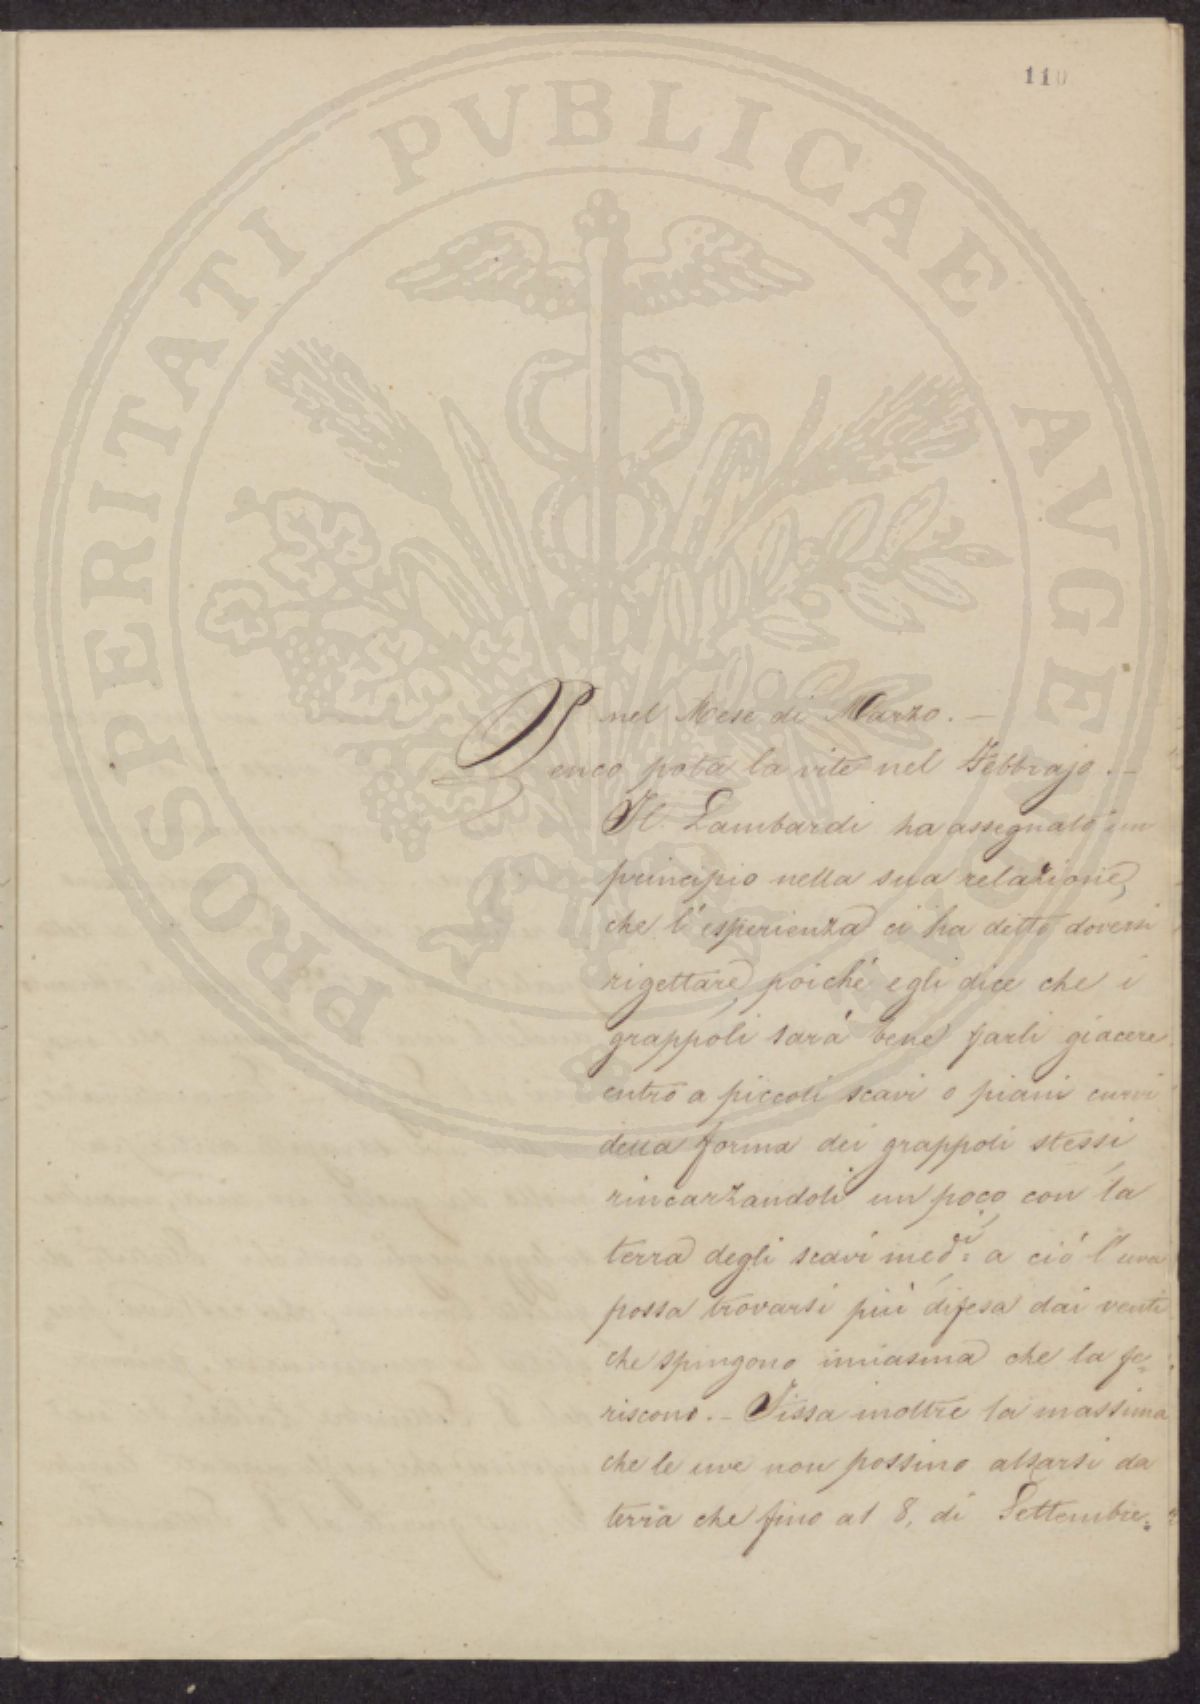 110
PROSPERITATI PVBLICAE AVGE
nel Mese di Marzo. –
Benco pota la vite nel Febbrajo. –
Il Lambardi ha assegnato un
principio nella sua relazione,
che l'esperienza ci ha detto doversi
rigettare, poiché egli dice che i
grappoli sará bene farli giacere
entro a piccoli scavi o piani curvi
della forma dei grappoli stessi,
rincarzandoli un poco con la
terra degli scavi med:ci, a ció l'uva
possa trovarsi piú difesa dai venti
che spingono i miasma che la fe=
riscono. – Fissa inoltre la massima
che le uve non possino alzarsi da
terra che fino al 8, di Settembre.